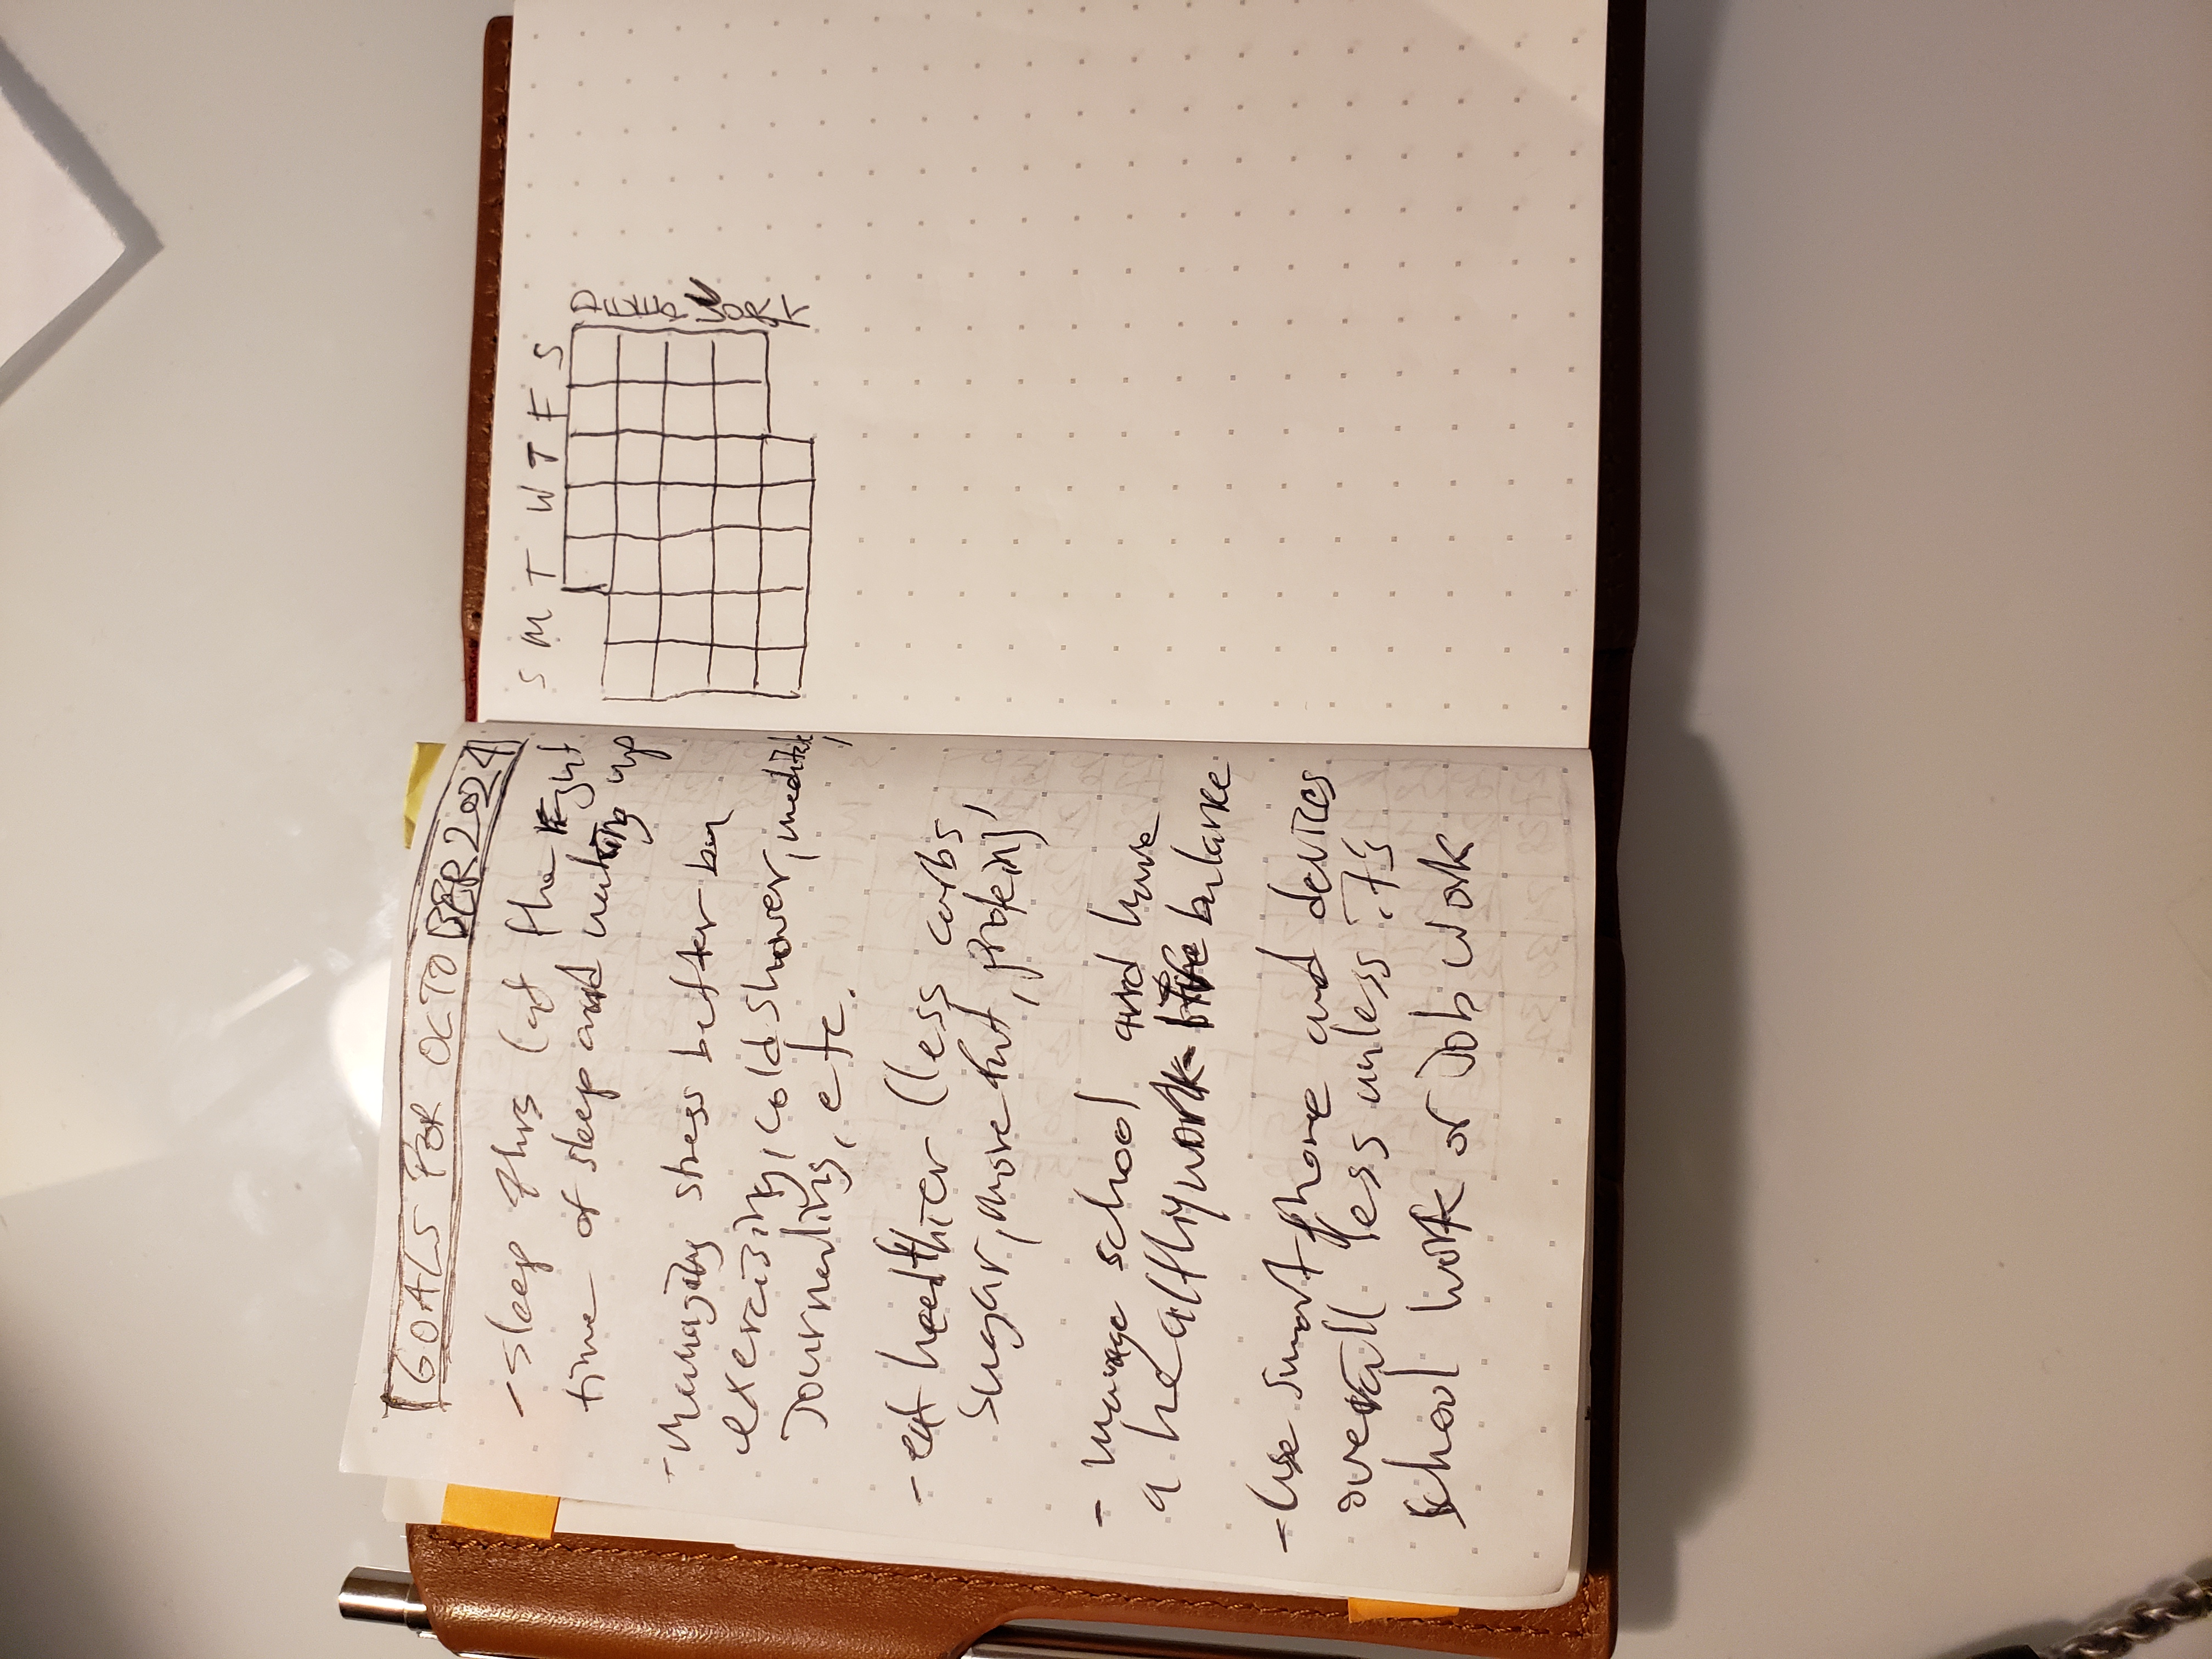 GOALS FOR OCTOBER 2024
- sleep 7hrs (at the right
time of sleep and waking up
- Managing stress better by
exercising, cold shower, meditate,
Journaling, etc.
- eat healthier (less carbs,
sugar, more fat, protein)
- manage school and have
a healthy work-life balance
- Use smartphone and devices
overall less unless it's
school work or Job work
S M T W T F S
DEEP WORK